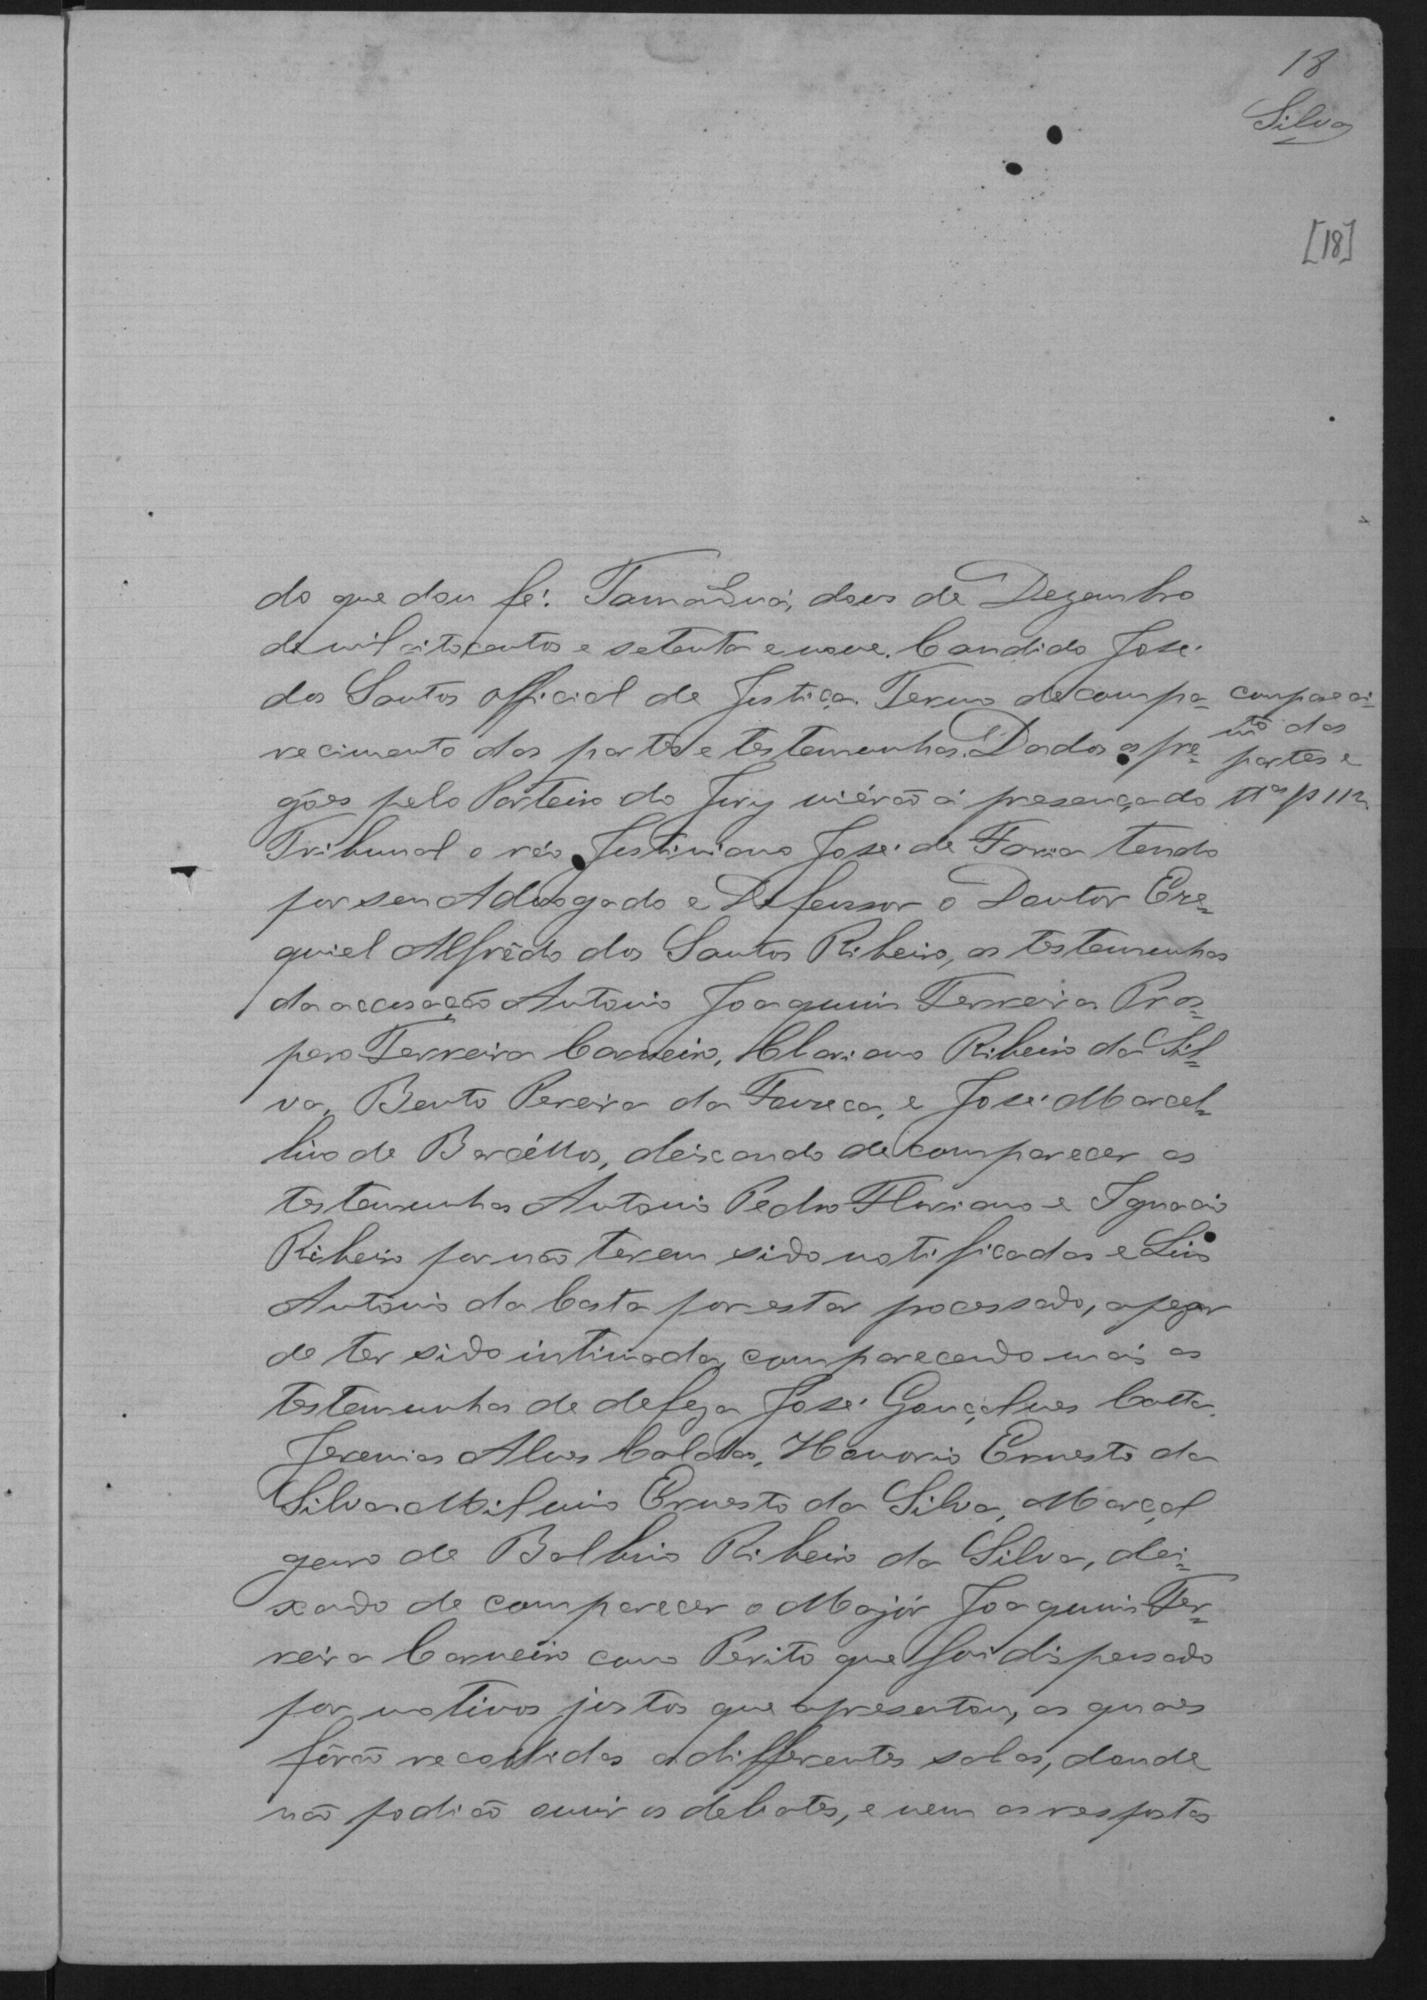 18
Silva
[18]
do que dou fé. Tamanduá, dous de Dezembro
de mil oitocentos e setenta e nove. Candido José
dos Santos official de Justiça. Termo de compa-
recimento das partes e testemunhas. Dados os pre-
gões pelo Porteiro do Jury viérão á presença do
Tribunal o réo Justiniano José de Faria tendo
por seu Advogado e Defensor o Doutor Eze-
quiel Alfrêdo dos Santos Ribeiro, as testemunhas
da accusação Antonio Joaquim Ferreira Pros-
pero Ferreira Carneiro, Clariano Ribeiro da Sil-
va, Bento Pereira da Fonseca, e José Marcel-
lino de Barcéllos, deixando de comparecer as
testemunhas Antonio Pedro Floriano e Ignacio
Ribeiro por não terem sido notificadas e Luis
Antonio da Costa por estar processado, apezar
de ter sido intimada, comparecendo mais as
testemunhas de defeza José Gonçalves Cotta,
Jeremias Alves Caldas, Honorio Ernesto da
Silva Ernesto da Silva, Marçal
genro de Balbino Ribeiro da Silva, dei-
xando de comparecer o Majór Joaquim Fer-
reira Carneiro como Perito que foi dispensado
por motivos justos que apresentou, as quaes
fôrão recolhidas a differentes salas, donde
não podião ouvir os débates, e nem as respostas
compareci-
mto das
partes e